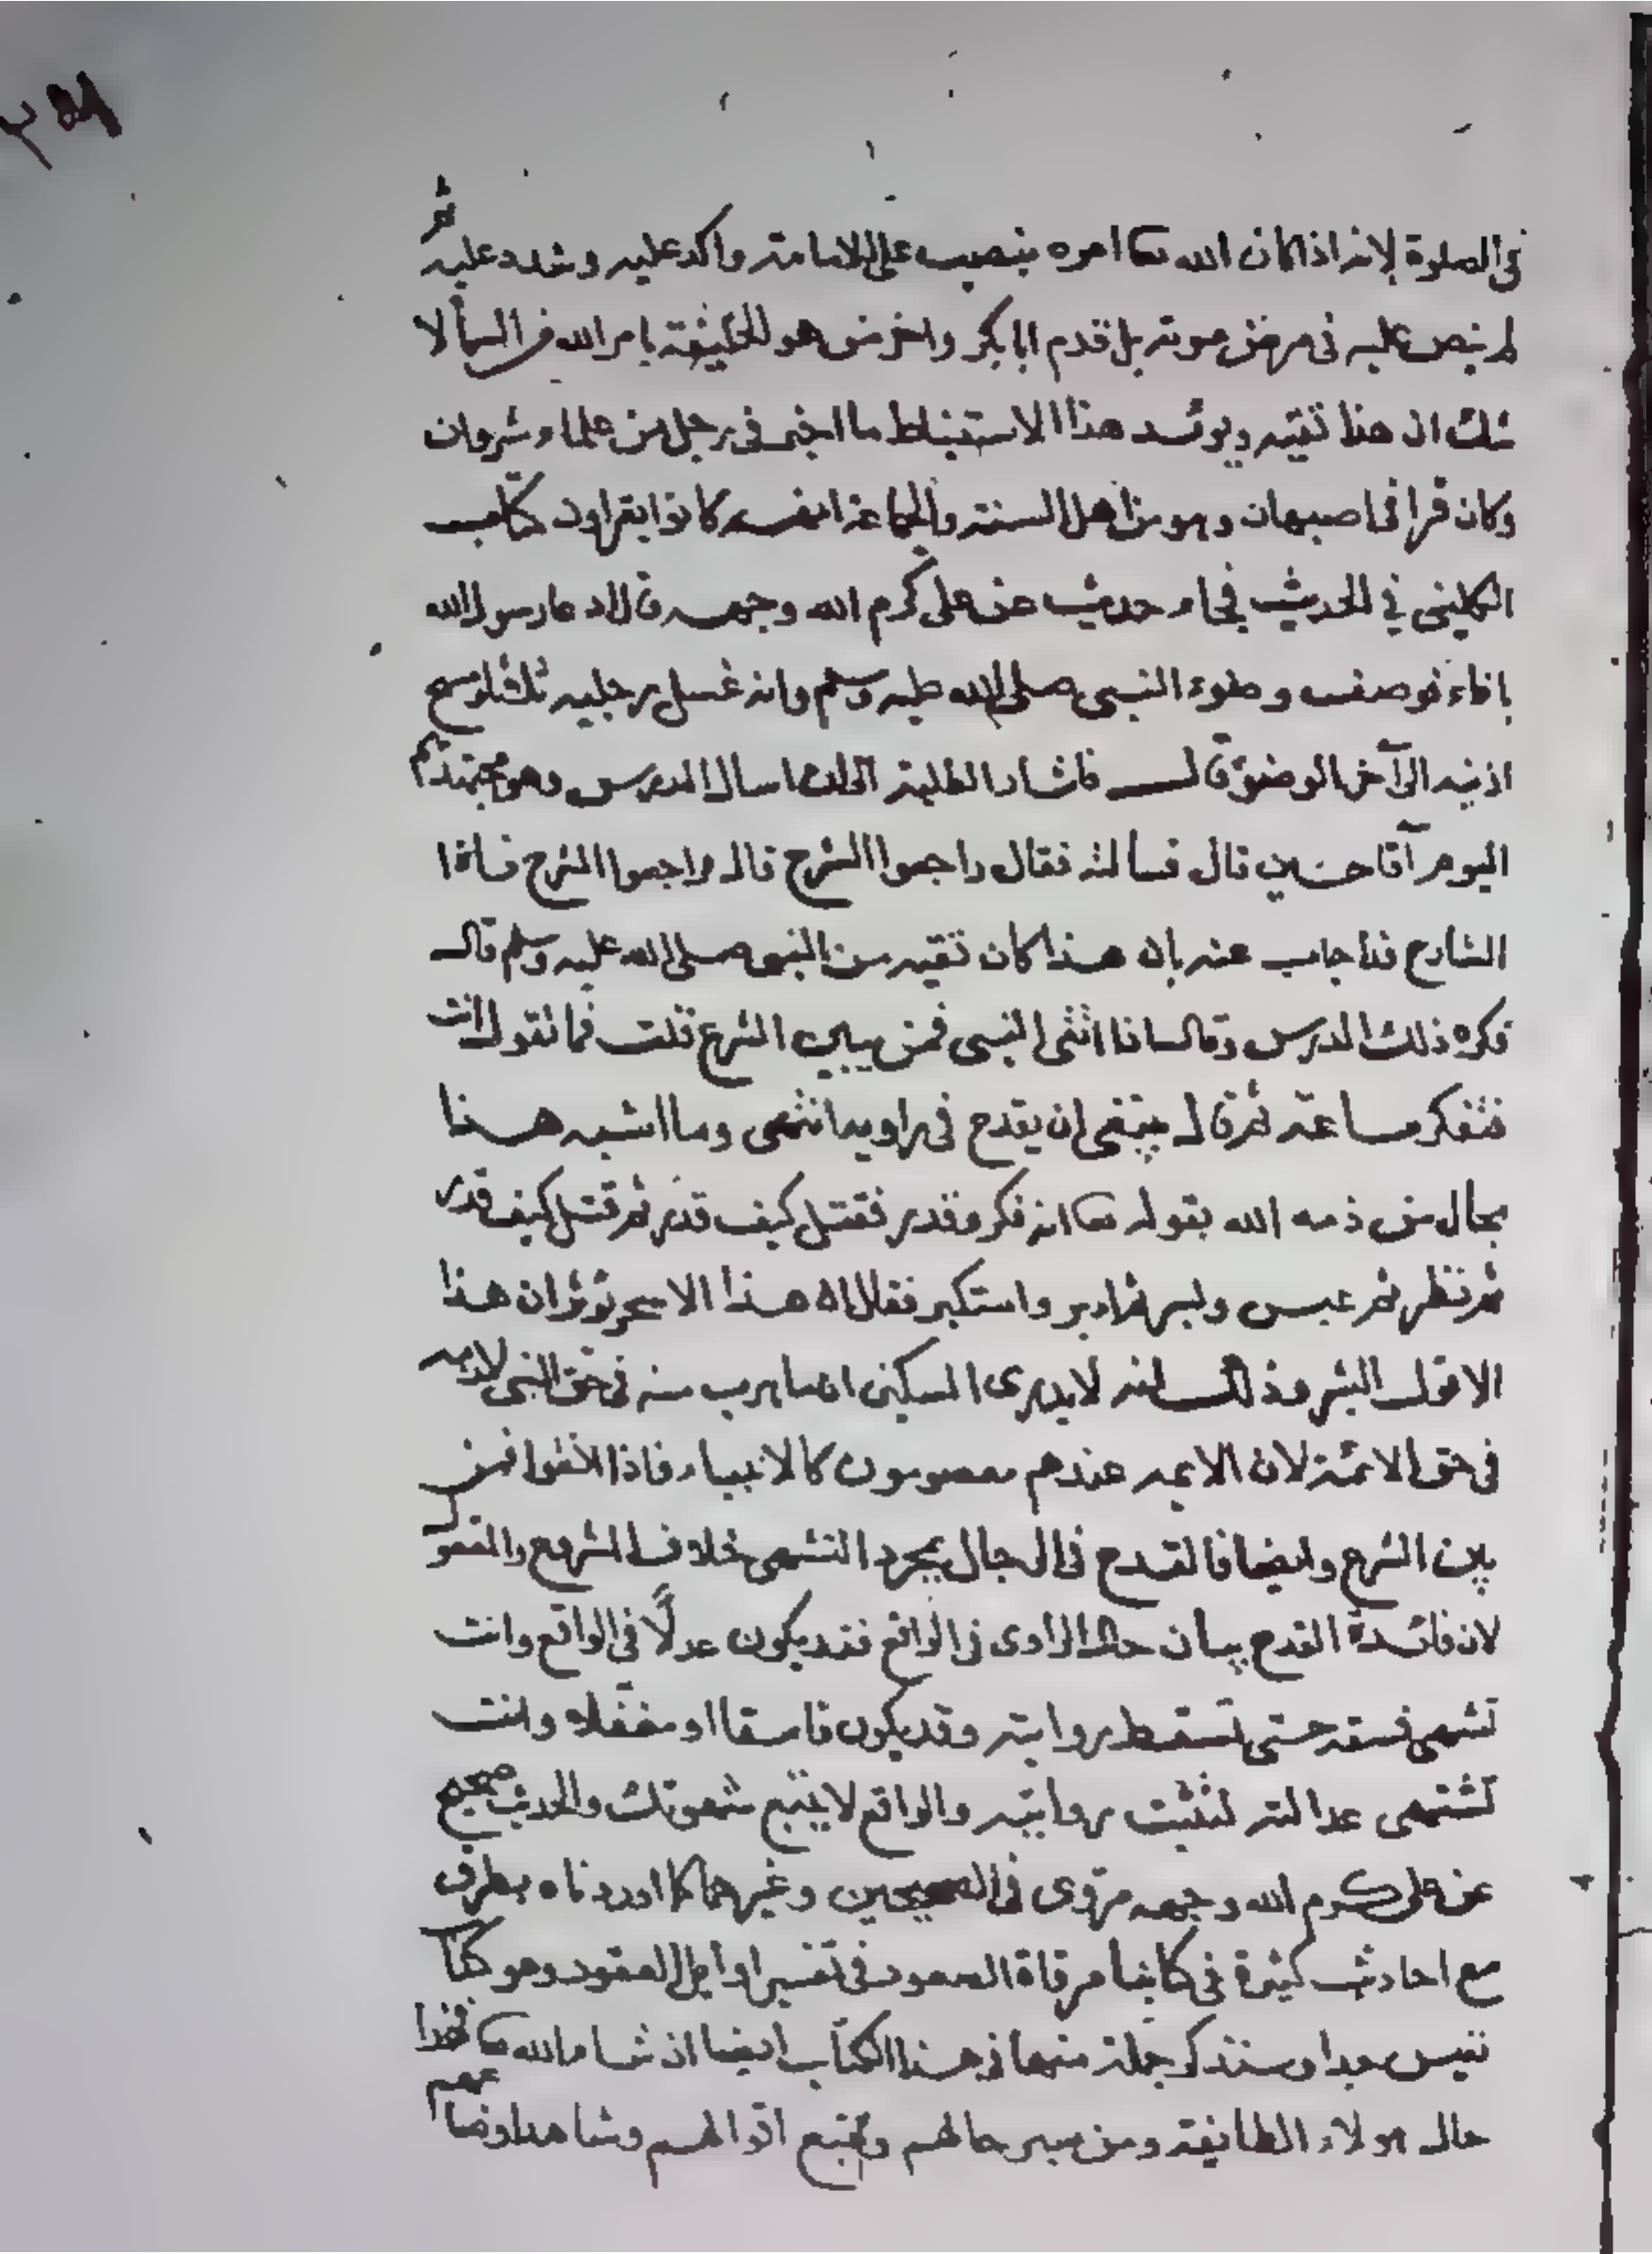 في الصلوة لانه اذا كان الله تعا امره بنصب علي للامامة واكد عليه وشدد عليه ثم
لم ينص عليه في مرض موته بل قدم ابا بكر واخر من هو الخليفة بامر الله من السمأ لا
شك ان هذا تقيه ويوئد هذا الاستنباط ما اخبرني رجل من علماء شروان
وكان قرا في اصبهان وهو من اهل السنة والجماعة انهم كانوا يقراون كتاب
الكليني في الحديث فجاء حديث عن علي كرم الله وجهه قال دعا رسول الله
باناء فوصف وضوء النبي صلى الله عليه وسلم وانه غسل رجليه ثلثا ومسح
اذنيه الى آخر الوضوء قال فاشار الطلبة الي ان اسال المدرس وهو مجتهدهم
اليوم آقا حسين قال فسالته فقال راجعوا الشرح قال فراجعوا الشرح فاذا
الشارح قد اجاب عنه بان هذا كان تقيه من النبي صلى الله عليه وسلم قال
فكره ذلك المدرس وقال اذا اتقى النبي فمن يبين الشرع قلت فما تقول انت
فتفكر ساعة ثم قال ينبغي ان يقدح في راويه انتهى وما اشبه هذا
بحال من ذمه الله بقوله تعا انه فكر وقدر فقتل كيف قدر ثم قتل كيف قدر
ثم نظر ثم عبس وبسر ثم ادبر واستكبر فقال ان هذا الا سحر يؤثر ان هذا
الا قول البشر وذلك انه لا يدري المسكين ان ما هرب منه في حق النبي لازمه
في حق الائمة لان الايمه عندهم معصومون كالانبياء فاذا اتقوا فمن
يبين الشرع وايضا فالقدح في الرجال بمجرد التشهي خلاف الشرع والعقول
لان فائدة القدح بيان حال الراوى في الواقع فقد يكون عدلًا في الواقع وانت
تشهى فسقه حتى تسقط روايته وقد يكون فاسقا او مغفلا وانت
تشتهى عدالته لتثبت روايته والواقع لا يتبع شهوتك والحديث صحيح
عن علي كرم الله وجهه مروى في الصحيحين وغيرهما كما اوردناه بطرق
مع احاديث كثيرة في كتابنا مرقاة الصعود في تفسير اوايل العقود وهو كتاب
نفيس جدا وسنذكر جملة منها في هذا الكتاب ايضا ان شاء الله تعا فهذا
حال هولاء الطايفة ومن سبر حالهم وتتبع اقوالهم وشاهد اوضاعهم